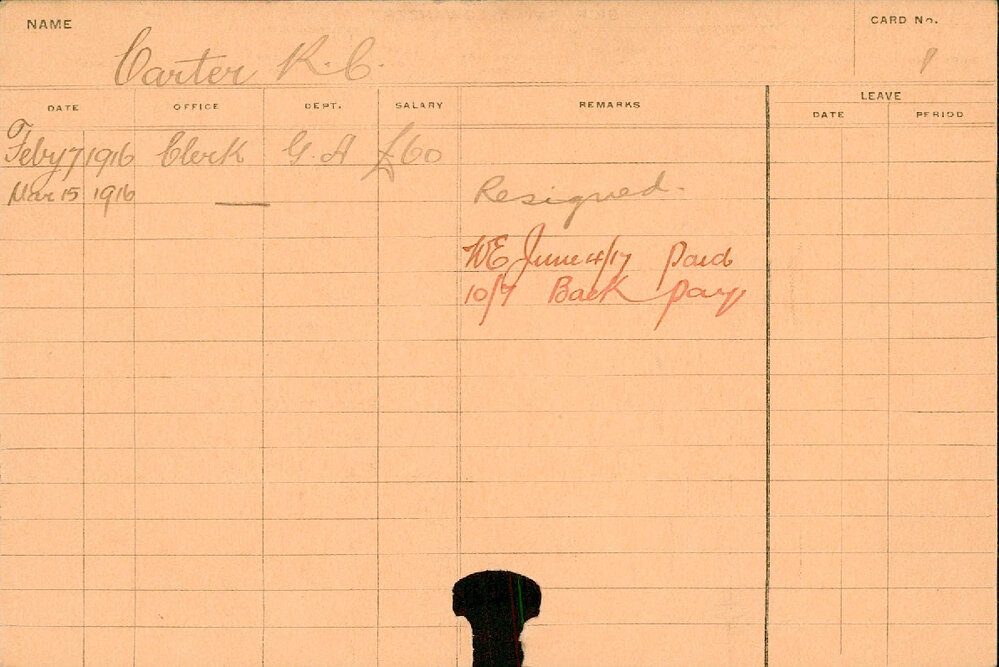 NAME
CARD No.
Carter R.C.
1
DATE OFFICE DEPT. SALARY REMARKS LEAVE
DATE PERIOD
Feby 7 1916 Clerk G.A £60
Mar 15 1916 — Resigned.
WE June 4/17 Paid
10/7 Back pay